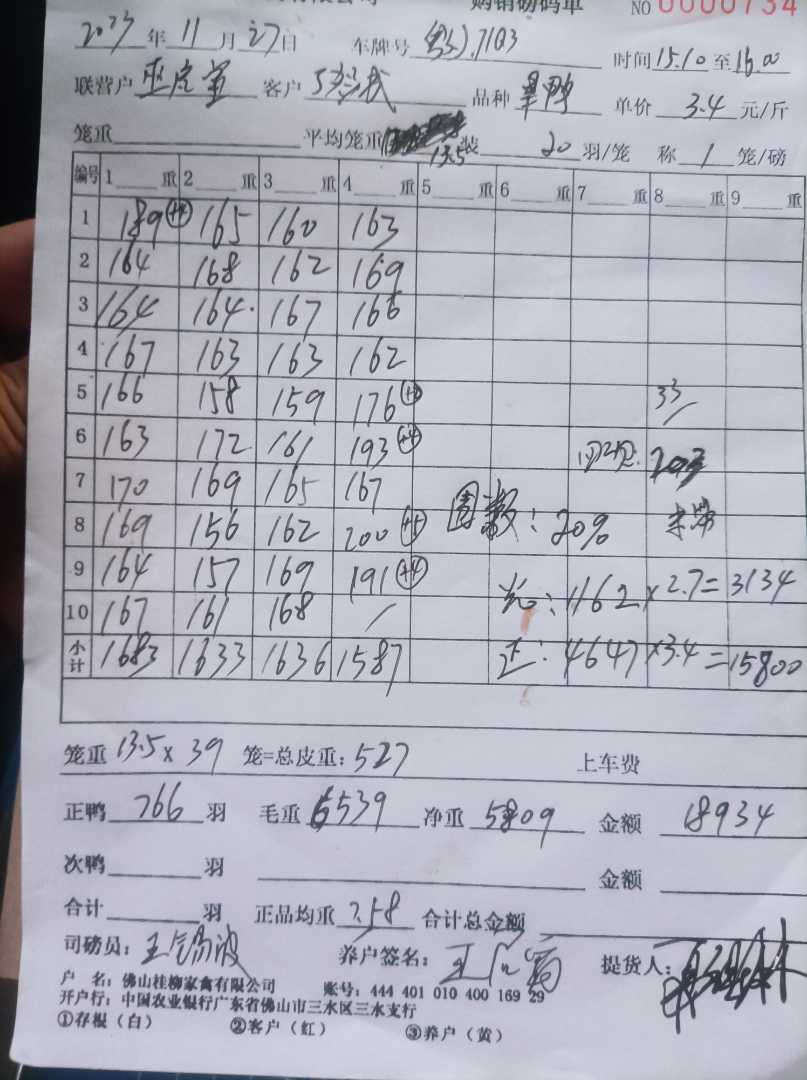 购销磅码单 NO 0000734
2023 年 11 月 27 日 车牌号 7103 时间 15.10 至 16.00
联营户 客户 品种 单价 3.4 元/斤
笼重 平均笼重 13.5 装 20 羽/笼 称 1 笼/磅
编号 1 重 2 重 3 重 4 重 5 重 6 重 7 重 8 重 9 重
1 189 +4 165 160 163
2 164 168 162 169
3 164 164 167 166
4 167 163 163 162
5 166 158 159 176 33
6 163 172 161 193 +4
7 170 169 165 167
8 169 156 162 200 +5 数: 20%
9 164 157 169 191 +4 1162 x 2.7 = 3134
10 167 161 168 /
小计 1683 1633 1636 1587 正: 4647 x 3.4 = 15800
笼重 13.5 x 39 笼=总皮重: 527 上车费
正鸭 766 羽 毛重 6539 净重 5809 金额 18934
次鸭 羽 金额
合计 羽 正品均重 7.58 合计总金额
司磅员: 王 养户签名: 王 提货人:
户 名: 佛山桂柳家禽有限公司 账号: 444 401 010 400 169 29
开户行: 中国农业银行广东省佛山市三水区三水支行
①存根(白) ②客户(红) ③养户(黄)